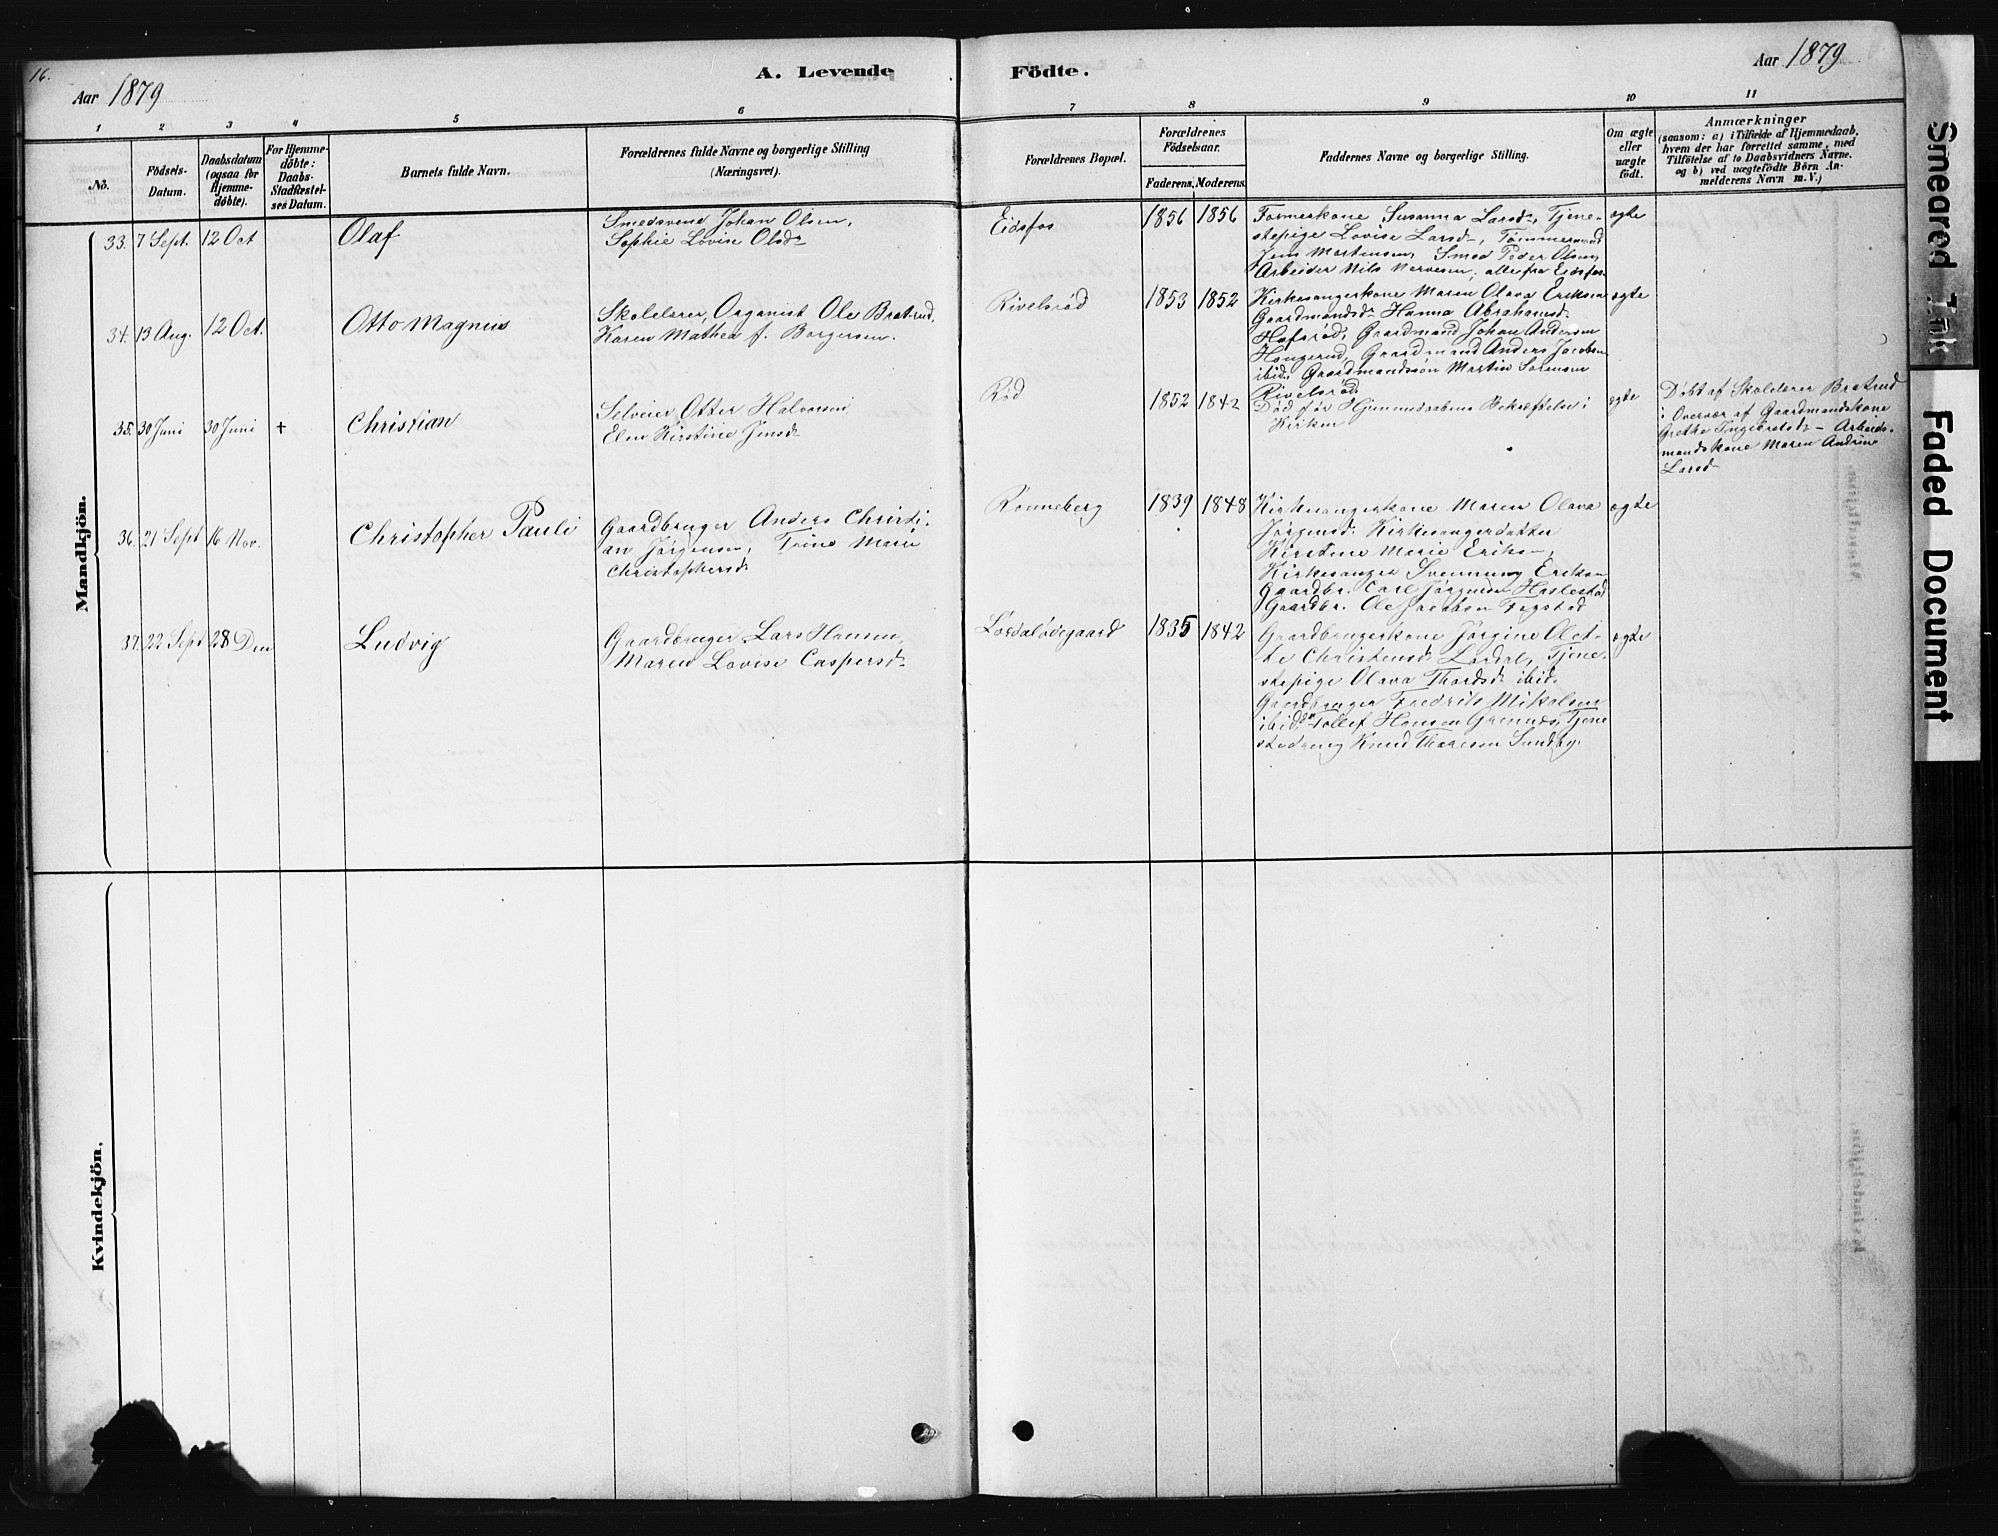 16.
Aar 1879
A. Levende
Födte.
Aar 1879
1 2 3 4 5 6 7 8 9 10 11
No.
Födsels-
Datum.
Daabsdatum
(ogsaa for
Hjemme-
döbte).
For Hjemme-
döbte:
Daabs-
Stadfæstel-
ses Datum.
Barnets fulde Navn.
Forældrenes fulde Navne og borgerlige Stilling
(Næringsvei).
Forældrenes Bopæl.
Forældrenes
Födselsaar.
Faderens. Moderens.
Faddernes Navne og borgerlige Stilling.
Om ægte
eller
uægte
födt.
Anmærkninger
(saasom: a) i Tilfælde af Hjemmedaab,
hvem der har forrettet samme, med
Tilföielse af to Daabsvidners Navne,
og b) ved uægtefödte Börn An-
melderens Navn m. V.)
Mandkjön.
33. 7 Sept. 12 Oct
Olaf
Smedsvend Johan Olsen,
Sophie Lovise Olsd.
Eidsfos
1856 1856
Formerkone Susanna Larsd., Tjene-
stepige Lovise Larsd., Tømmermand
Jens Martensen, Smed Peder Olsen,
Arbeider Nils Narvesen, alle fra Eidsfos.
ægte
34. 13 Aug. 12 Oct.
Otto Magnus
Skolelærer, Organist Ole Bratrud,
Karen Mathea f. Borgersen.
Rivelsrød
1853 1852
Kirkesangerkone Maren Olava Eriksen
Gaardmandsd. Hanna Abrahamsd.
Hafsrød, Gaardmand Johan Andersen
Haugerud, Gaardmand Anders Jacobsen
ibid. Gaardmandssøn Martin Sørensen
Rivelsrød
ægte
35. 30 Juni 30 Juni †
Christian
Selveier Otter Halvorsen,
Elen Kirstine Jensd.
Rød
1852 1842
Død før Hjemmedaabens Bekræftelse i
Kirken
ægte
Døbt af Skolelærer Bratrud
i Overvær af Gaardmandskone
Grethe Ingebretsd. – Arbeids-
mandskone Maren Andrine
Larsd.
36. 21 Sept 16 Nov.
Christopher Pauli
Gaardbruger Anders Christi-
an Jørgensen, Trine Marie
Christophersd.
Ronneberg
1839 1848
Kirkesangerskone Maren Olava
Jørgensd. Kirkesangerdatter
Kirstine Marie Eriksen,
Kirkesanger Svennung Eriksen
Gaardbr. Carl Jørgensen Haslestad
Gaardbr. Ole Jacobsen Fegstad
ægte
37. 22 Sept 28 Dec
Ludvig
Gaardbruger Lars Hansen,
Maren Lovise Caspersd.
Løsdalødegaard
1835 1842
Gaardbrugerskone Jørgine Olet-
te Christensd. Løsdal, Tjene-
stepige Olava Thordsd. ibid.
Gaardbruger Fredrik Mikalsen
ibid. Tollef Hansen Grennes, Tjene
stedreng Knud Thoresen Sundby.
ægte
Kvindekjön.
Smeared Ink
Faded Document